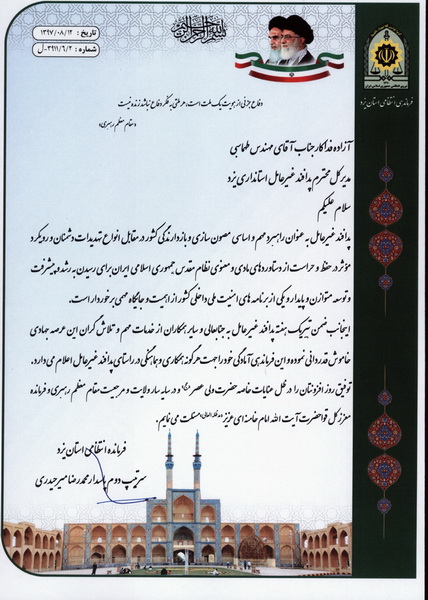 بسم الله الرحمن الرحیم
تاریخ : ۱۳۹۷/۰۸/۱۲
شماره : ۳۹۱۱/۶/۲-ل
فرماندهی انتظامی استان یزد
دفاع جزئی از هویت یک ملت است، هر ملتی به فکر دفاع نباشد زنده نیست
«مقام معظم رهبری»
آزاده فداکار جناب آقای مهندس طهماسبی
مدیر کل محترم پدافند غیرعامل استانداری یزد
سلام علیکم
پدافند غیرعامل به عنوان راهبرد مهم و اساسی مصون سازی و بازدارندگی کشور در مقابل انواع تهدیدات دشمنان و رویکرد
مؤثر در حفظ و حراست از دستاوردهای مادی و معنوی نظام مقدس جمهوری اسلامی ایران برای رسیدن به رشد و پیشرفت
و توسعه متوازن و پایدار و یکی از برنامه های امنیت ملی داخلی کشور از اهمیت و جایگاه مهمی برخوردار است.
اینجانب ضمن تبریک هفته پدافند غیرعامل به جنابعالی و سایر همکاران از خدمات مهم و تلاش گران این عرصه جهادی
خاموش قدردانی نموده و این فرماندهی آمادگی خود را جهت هرگونه همکاری و هماهنگی در راستای پدافند غیرعامل اعلام می دارد.
توفیق روز افزونتان را در ظل عنایات خاصه حضرت ولی عصر (عج) و در سایه سار ولایت و مرجعیت مقام معظم رهبری و فرمانده
معزز کل قوا حضرت آیت الله امام خامنه ای عزیز (مدظله العالی) مسئلت می نمایم.
فرمانده انتظامی استان یزد
سرتیپ دوم پاسدار محمدرضا میرحیدری